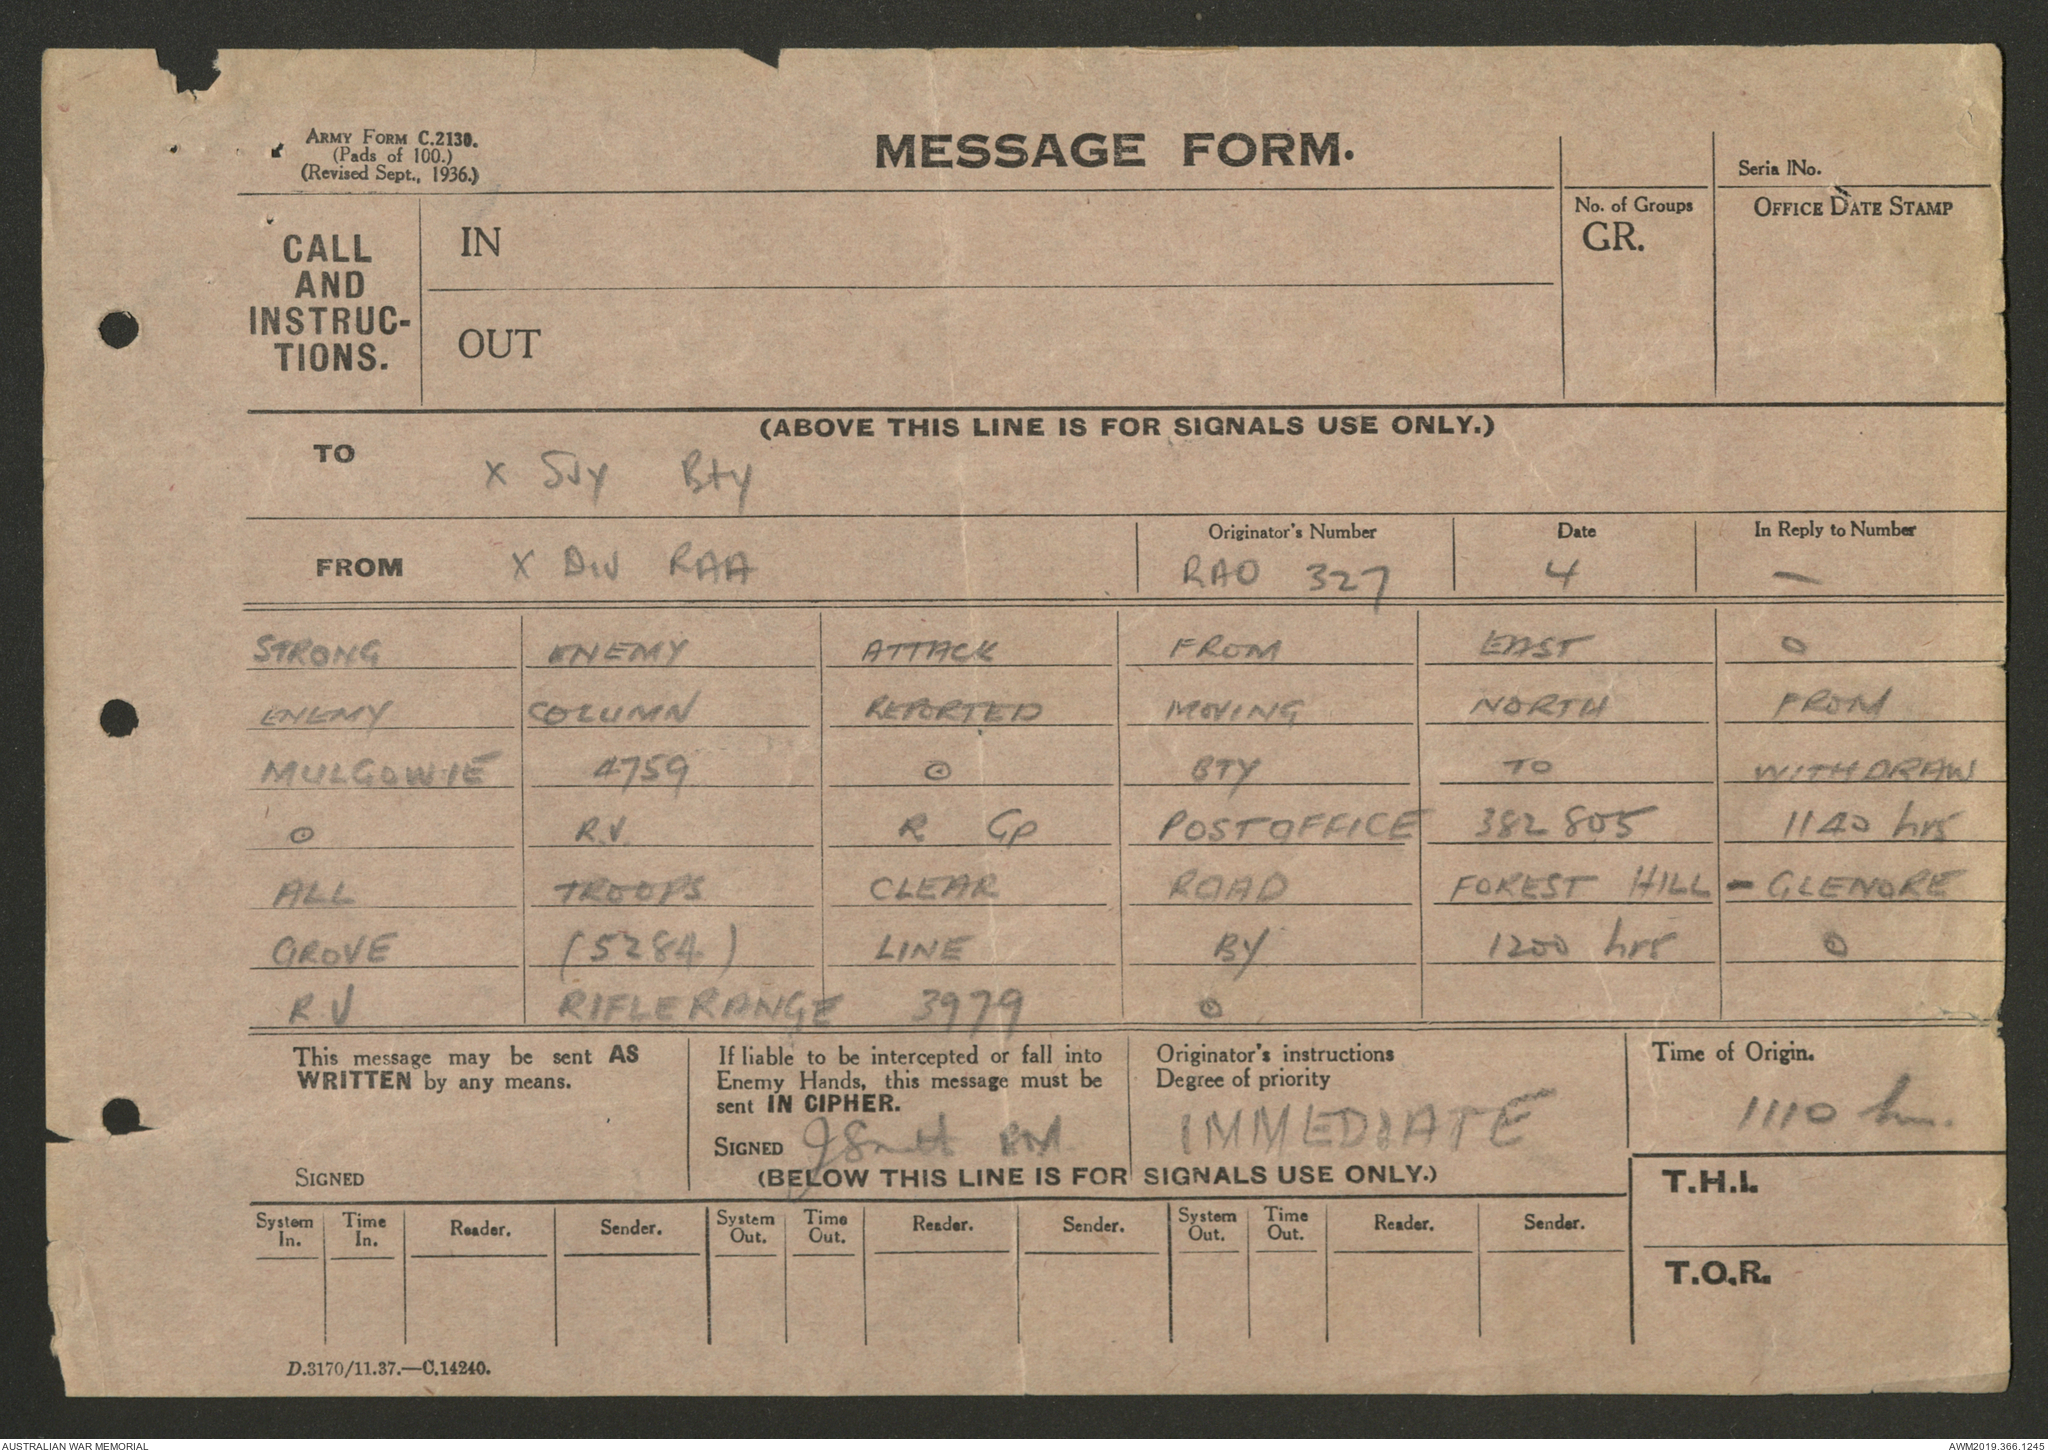 ARMY FORM C.2130.
(Pads of 100.)
(Revised Sept., 1936.)
MESSAGE FORM.
Serial No.
CALL AND INSTRUC-TIONS.
IN
OUT
No. of Groups
GR.
OFFICE DATE STAMP
(ABOVE THIS LINE IS FOR SIGNALS USE ONLY.)
TO
X Svy Bty
FROM
X Div RAA
Originator's Number
RAO 327
Date
4
In Reply to Number
—
STRONG ENEMY ATTACK FROM EAST O
ENEMY COLUMN REPORTED MOVING NORTH FROM
MULGOWIE 4759 ⊙ BTY TO WITHDRAW
⊙ R.V. R Gp POSTOFFICE 382805 1140 hrs
ALL TROOPS CLEAR ROAD FOREST HILL - GLENORE
GROVE (5284) LINE BY 1200 hrs ⊙
RV RIFLERANGE 3979 ⊙
This message may be sent AS
WRITTEN by any means.
SIGNED
If liable to be intercepted or fall into
Enemy Hands, this message must be
sent IN CIPHER.
SIGNED JSmith BM
Originator's instructions
Degree of priority
IMMEDIATE
Time of Origin.
1110
(BELOW THIS LINE IS FOR SIGNALS USE ONLY.)
T.H.I.
T.O.R.
System In. Time In. Reader. Sender. System Out. Time Out. Reader. Sender. System Out. Time Out. Reader. Sender.
D.3170/11.37.—C.14240.
AUSTRALIAN WAR MEMORIAL
AWM2019.366.1245